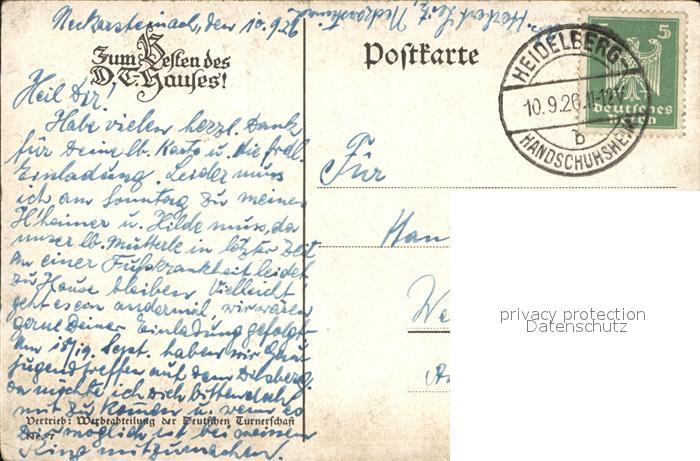 Neckarsteinach, den 10.9.26
Herbert Seitz, Neckarsteinach
Zum Besten des
D.T. Hauses!
Postkarte
HEIDELBERG-
10.9.26. 11-12V
b
HANDSCHUHSHEIM
5
deutsches
reich
Heil Dir!
Habe vielen herzl. Dank
für Deine lb. Karte u. die frdl.
Einladung. Leider muss
ich am Sonntag zu meinen
H'heimer u. Hilde muss, da
unser lb. Mutterle in letzter Zeit
an einer Fusskrankheit leidet
zu Hause bleiben. Vielleicht
geht es ein andermal, wir wären
gerne Deiner Einladung gefolgt.
Am 18/19. Sept. haben wir Gau
jugendtreffen auf dem Dilsberg.
Da möchte ich Dich bitten doch
mit zu kommen u. wenn es
Dir möglich ist bei meinem
Ring mitzumachen.
Vertrieb: Werbeabteilung der Deutschen Turnerschaft
Nr. 7
Für
Han
We
privacy protection
Datenschutz